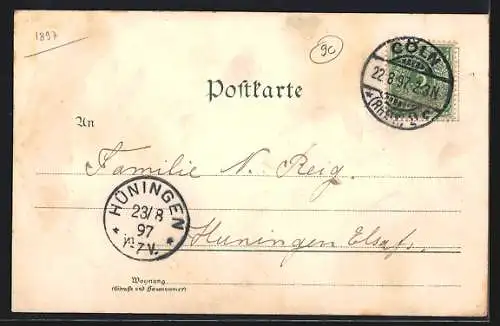 1897
90
CÖLN
22.8.97. 2-3N
Postkarte
An
Familie N. Reig.
HÜNINGEN
23/8
97
7V.
Huningen Elsaß.
Wohnung
(Straße und Hausnummer)